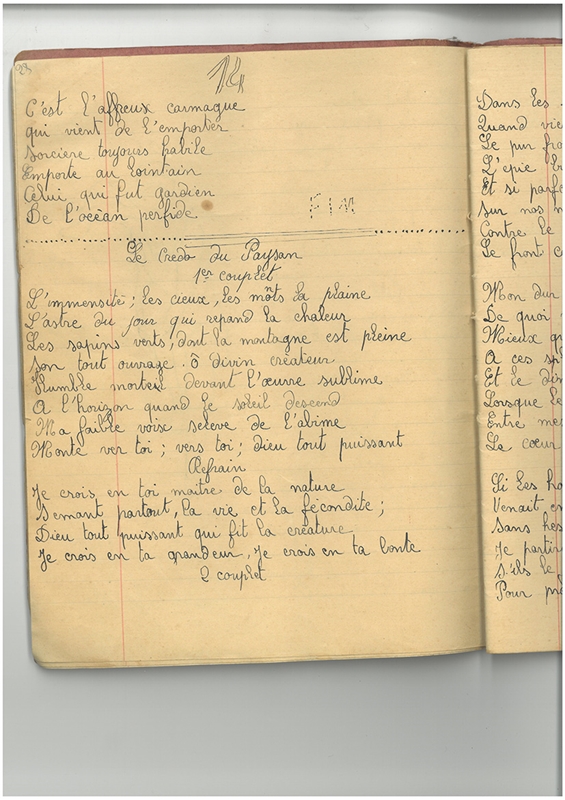 23
14
C'est l'affreux carmague
qui vient de l'emporter
sorcière toujours habile
Emporte au lointain
Celui qui fut gardien
De l'océan perfide
FIN
Le Credo du Paysan
1er couplet
L'immensité ; les cieux, les monts la plaine
L'astre du jour qui repand la chaleur
Les sapins verts, dont la montagne est pleine
son tout ouvrage. ô divin créateur
Humble mortel devant l'œuvre sublime
A l'horizon quand le soleil descend
Ma faible voix seleve de l'abime
Monte ver toi ; vers toi ; dieu tout puissant
Refrain
Je crois en toi maitre de la nature
Semant partout, la vie et la fécondite ;
Dieu tout puissant qui fit la créature
Je crois en ta grandeur, Je crois en ta bonte
2 couplet
Dans les
Quand
Le pur
L'epie
Et si
Sur nos
Contre le
Le front
Mon dur
De quoi
Mieux
A ces
Et le
Lorsque
Entre
Le cœur
Si les
Venait
Sans
Je
s'ils le
Pour